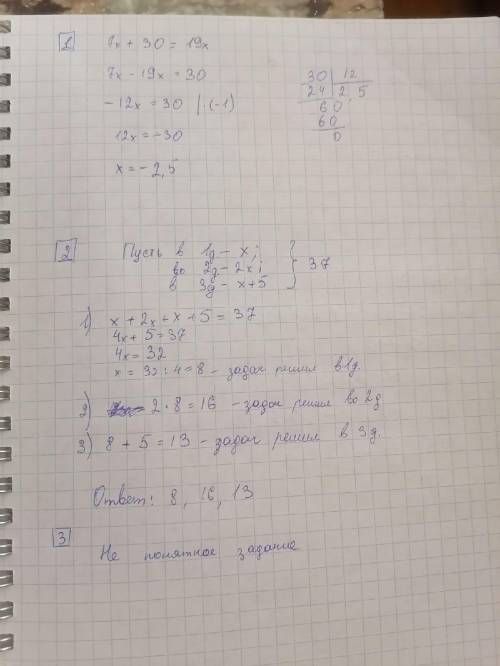 1
7x + 30 = 19x
7x - 19x = 30
-12x = 30 | ·(-1)
12x = -30
x = -2,5
30 | 12
24 | 2,5
60
60
0
2
Пусть в 1д - x;
во 2д - 2x;
в 3д - x+5
} 37
1) x + 2x + x + 5 = 37
4x + 5 = 37
4x = 32
x = 32 : 4 = 8 - задач решил в 1д.
2) 2 · 8 = 16 - задач решил во 2д
3) 8 + 5 = 13 - задач решил в 3д.
Ответ: 8, 16, 13
3
Не понятное задание